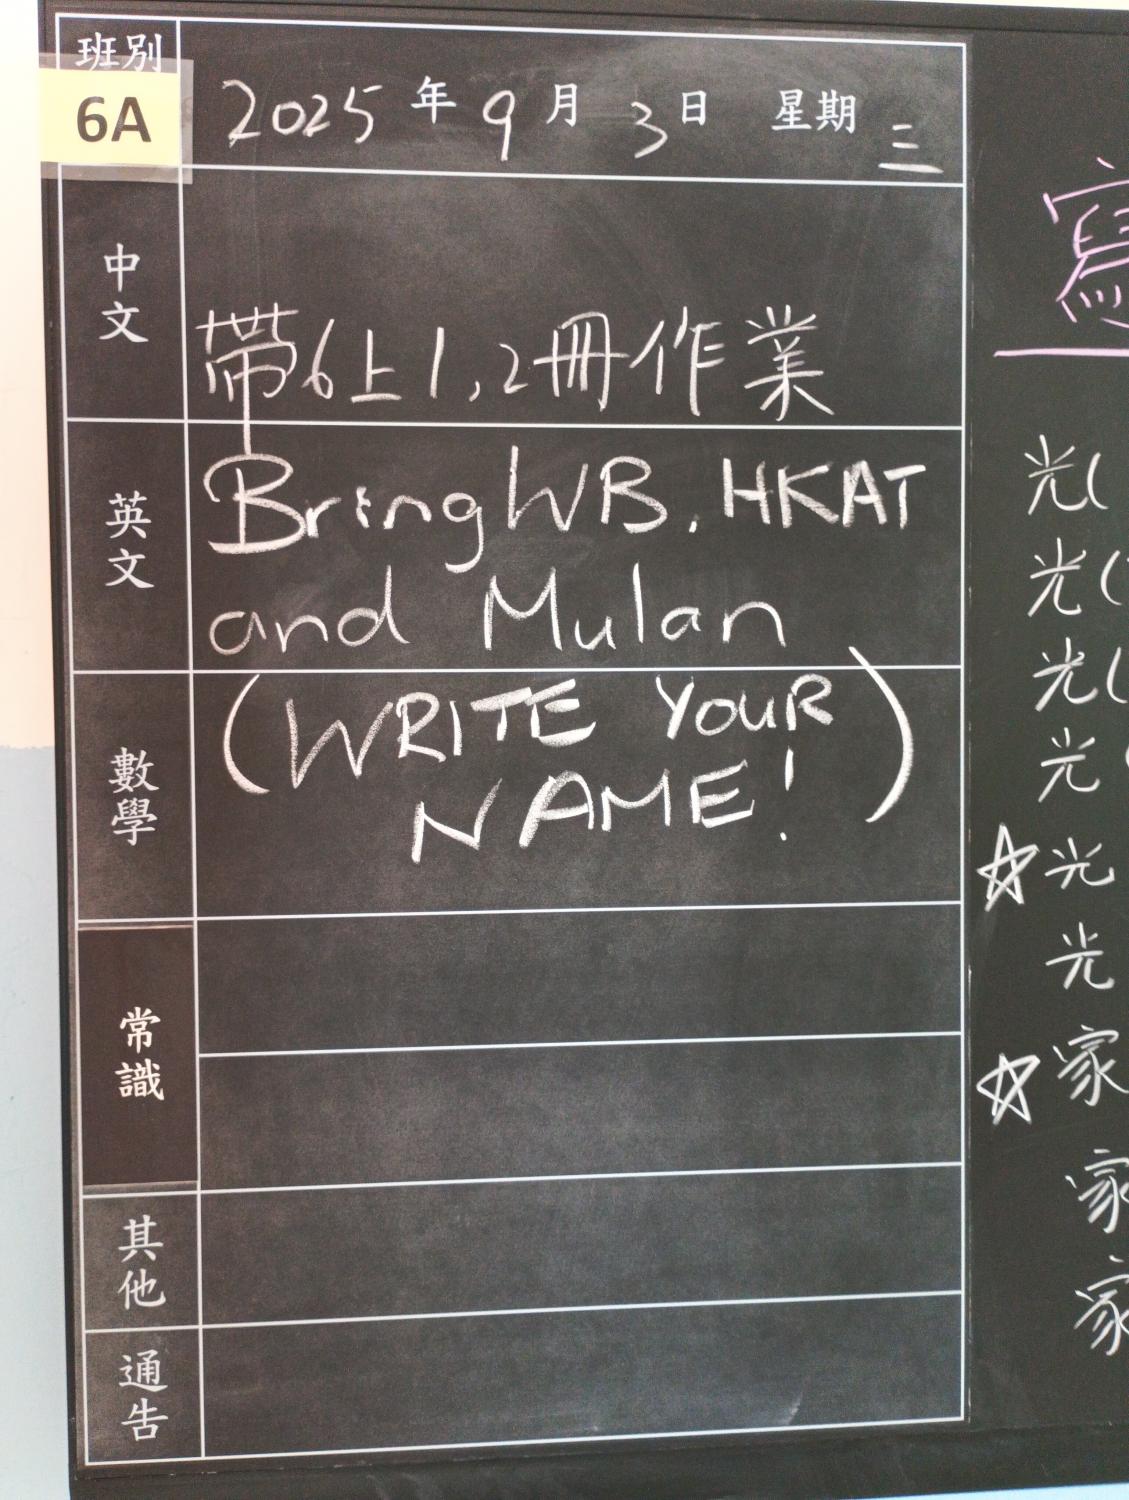 班別
6A
2025年9月3日 星期三
中文
帶6上1,2冊作業
英文
Bring WB, HKAT
and Mulan
數學
(WRITE YOUR
NAME!)
常識
其他
通告
寫
光(
光(
光(
光
☆光
光
☆家
家
家